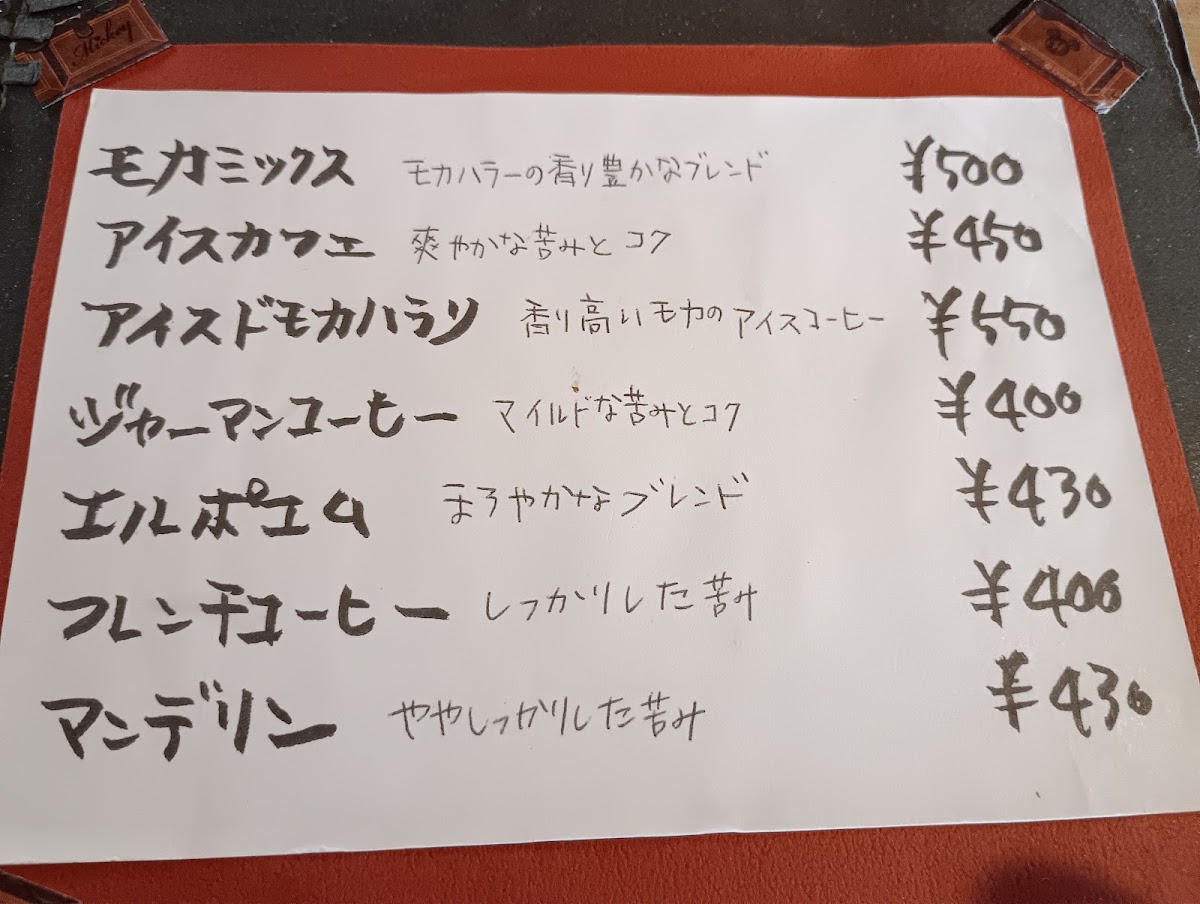 Mickey
モカミックス モカハラーの香り豊かなブレンド ¥500
アイスカフェ 爽やかな苦みとコク ¥450
アイスドモカハラリ 香り高いモカのアイスコーヒー ¥550
ジャーマンコーヒー マイルドな苦みとコク ¥400
エルポエム まろやかなブレンド ¥430
フレンチコーヒー しっかりした苦み ¥400
マンデリン ややしっかりした苦み ¥430